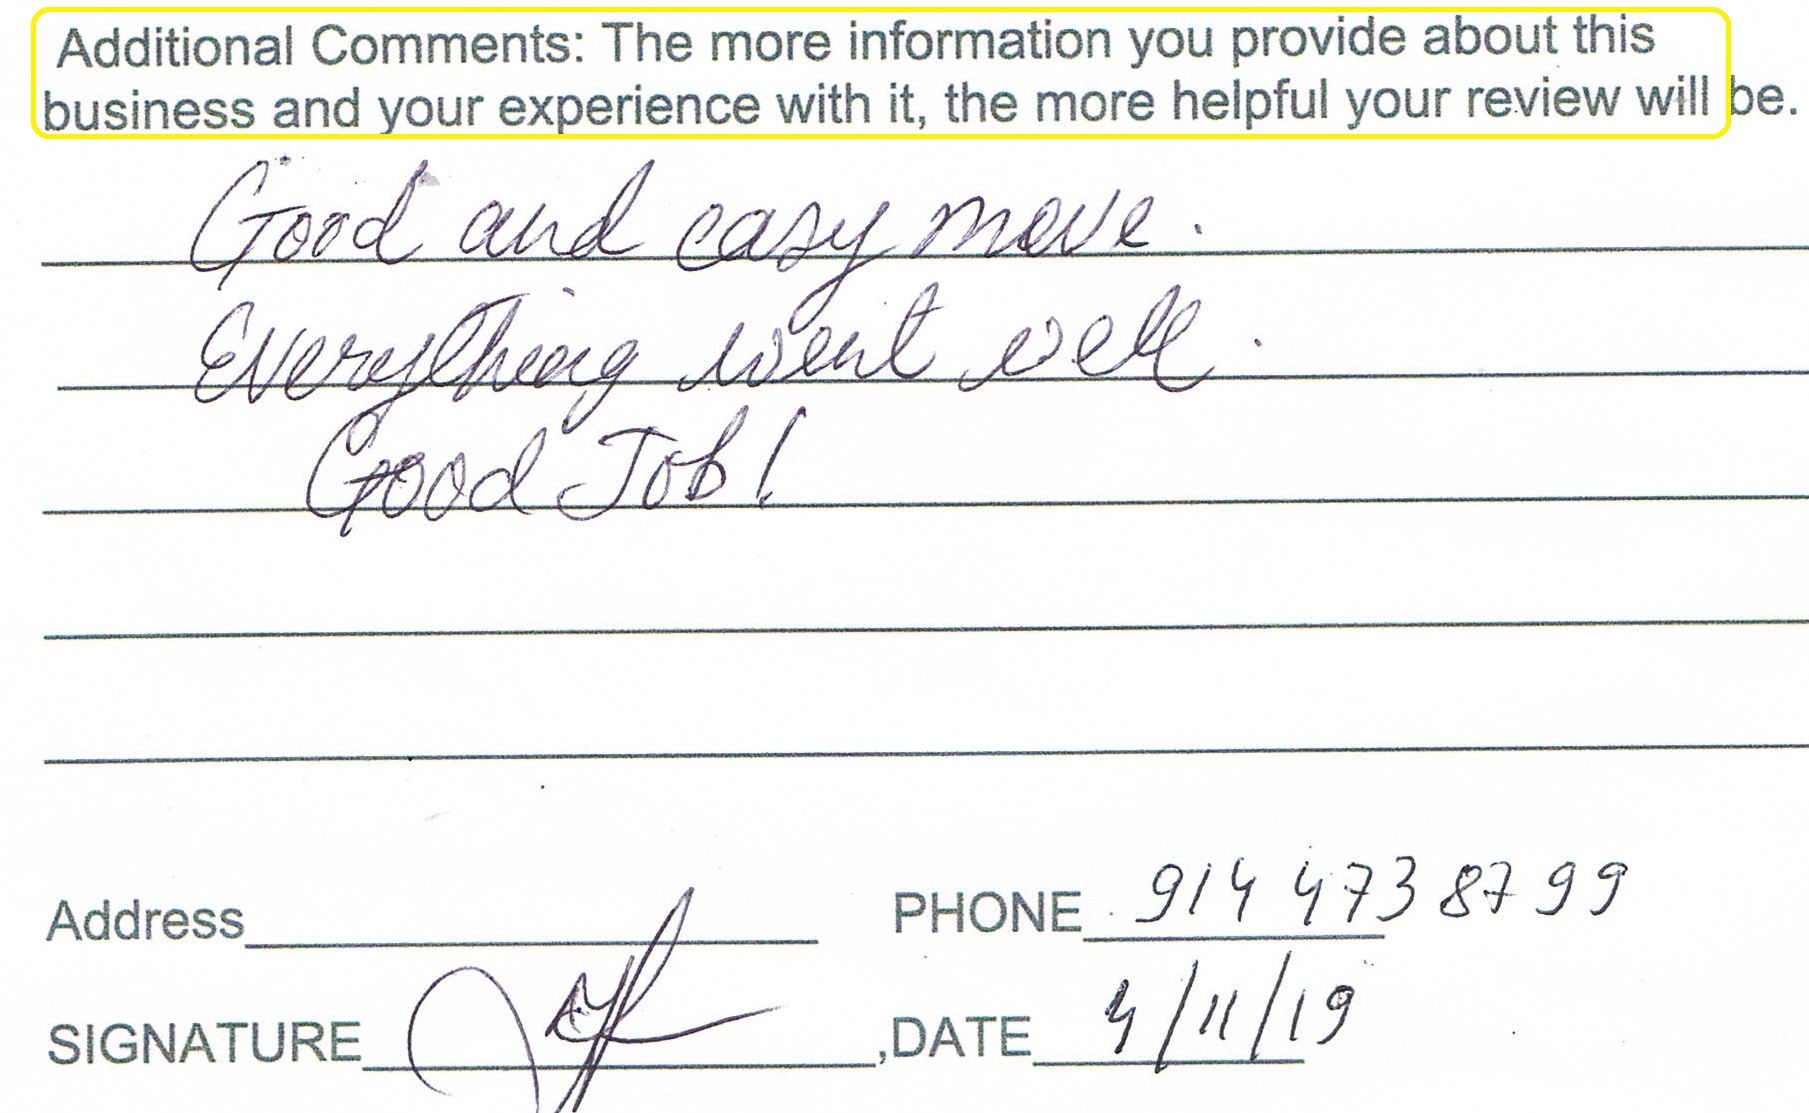 Additional Comments: The more information you provide about this
business and your experience with it, the more helpful your review will be.
Good and easy move.
Everything went well.
Good Job!
Address PHONE 914 473 8799
SIGNATURE ,DATE 4/11/19